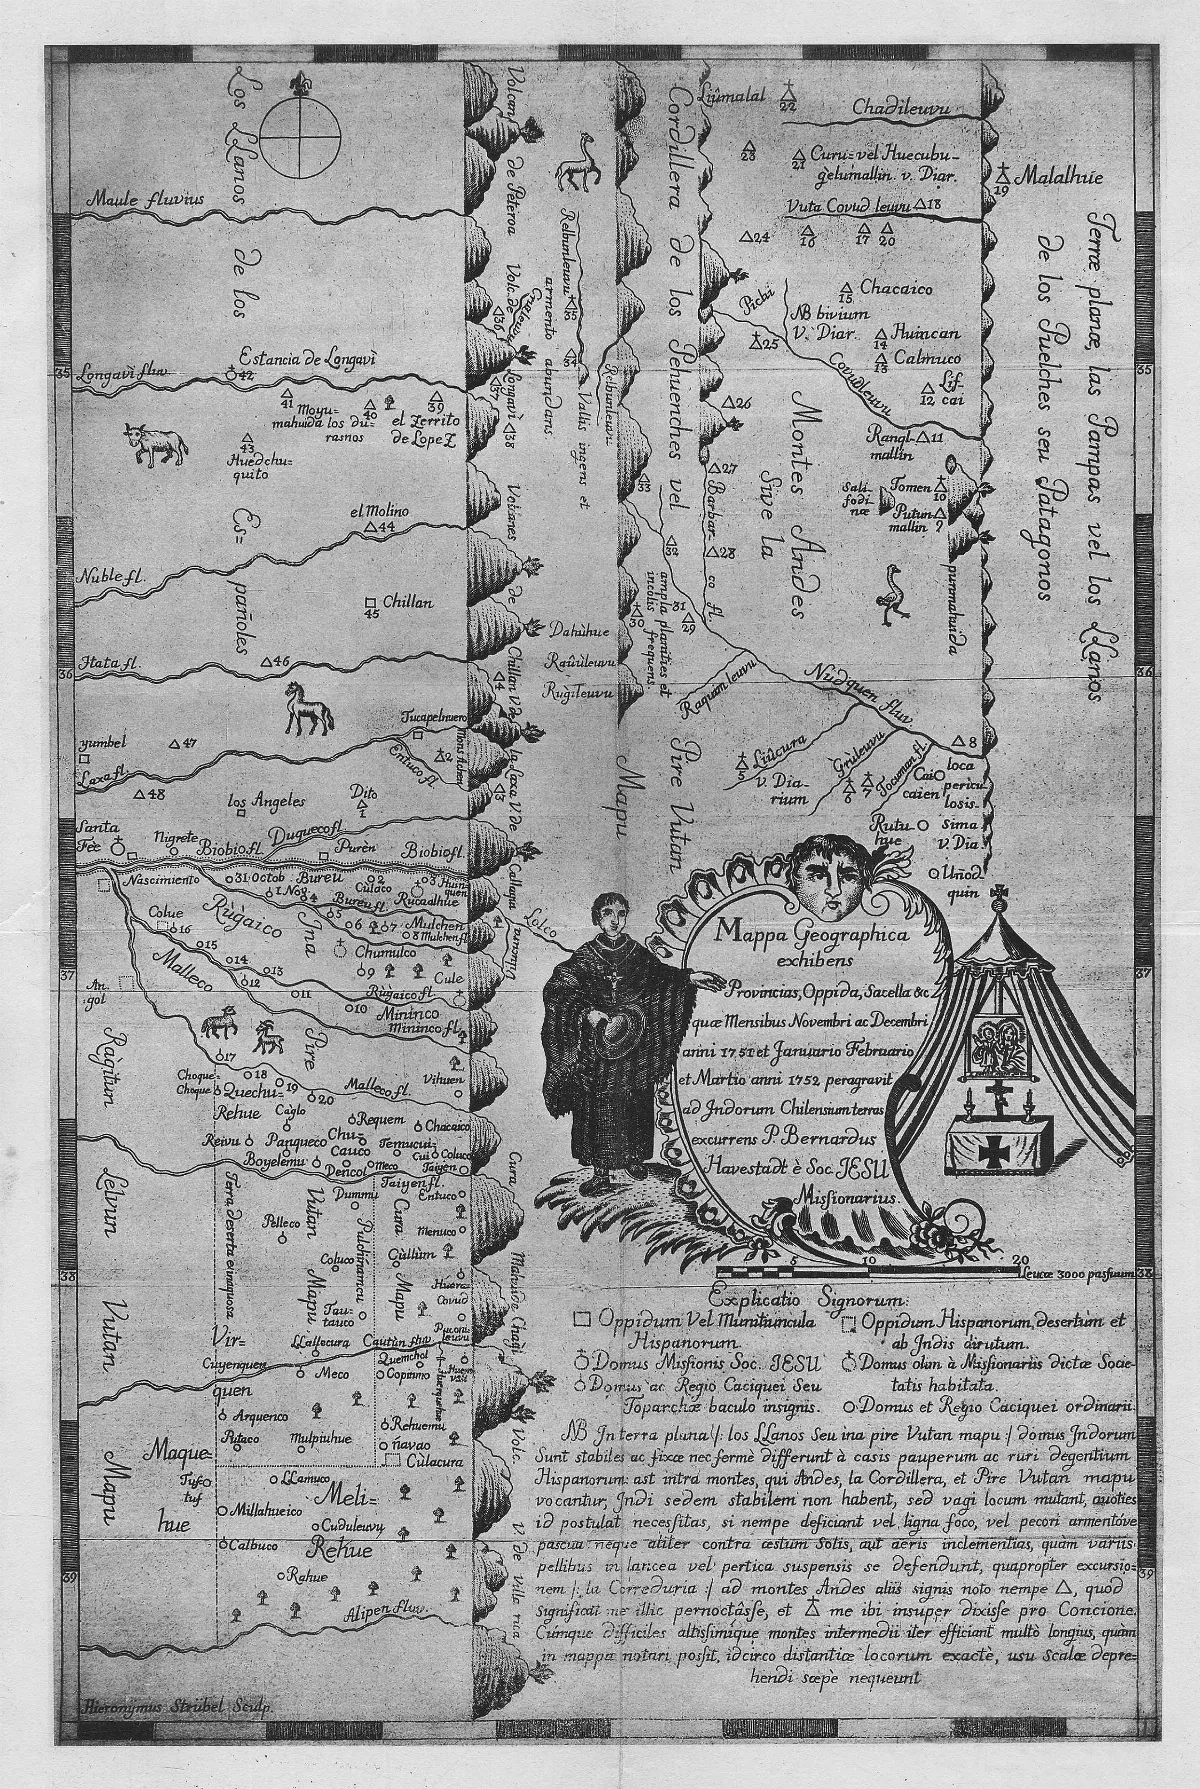 Los LLanos
de los
Es=
pañoles
Maule fluvius
Longavì fluv.
Estancia de Longavì
42
41
Moyu-
mahuida los du-
rasnos
40
39
el Zerrito
de Lopez
43
Huedchu-
quito
el Molino
44
Nuble fl.
Chillan
45
Itata fl.
46
yumbel
47
Laxa fl.
48
Tucapelnuevo
2
Entuco fl.
los Angeles
Dito
1
Santa
Fee
Nigrete
Biobio fl.
Duqueco fl.
Purèn
Biobio fl.
Nascimiento
31 Octob
Bureu
2
Culaco
3
Huin-
quen
1 Nov
4
Bureu fl.
Rucaalhue
5
6
7
Mulchen
8 Mulchen fl.
Colue
16
Rùgaico
Jna
15
14
13
12
11
10
9
Chumulco
Cule
Malleco
Rùgaico fl.
Mininco
Mininco fl.
An-
gol
17
18
19
20
Pire
Vihuen
Choque-
Choque
Quechu-
Rehue
Càglo
Malleco fl.
Requem
Chacaico
Reivu
Panqueco
Chu-
Cauco
Temucui-
Cui
Coluco
Boyelemu
Dencol
Meco
Taiyen
Ragitum
Lelvum
Vutan
Mapu
Taiyen fl.
Terra deserta et inaquosa
Dummu
Entuco
Pelleco
Vutan
Mapu
Coluco
Tau-
tauco
Cura
Mapu
Menuco
Gùllùm
Huera
Covud
Vir=
quen
LLallecura
Cautùn fluv
Cuyenquen
Meco
Quemchol
Copsimo
Arquenco
Putaco
Mulpiuhue
Rehuemu
ñavao
Cùlacura
Maque=
hue
Tuf-
tuf
LLamuco
Meli=
Rehue
Millahueico
Cuduleuvy
Calbuco
Rahue
Alipen fluv.
Hieronymus Strübel Sculp.
Volcan de Peteroa
Volc. de
Longavi
36
37
38
Volcanes de Chillan
V. de la Laxa
V. de Callaqui
4
3
Lolco
Cura
Mahuida Chagll
Volc.
V. de Villa rica
Relbunleuvu
armento abundans.
35
34
Vallis ingens et
Relbunleuvu
33
32
ampla planities et
incolis frequens.
31
30
29
Dahùhue
Raûùleuvu
Rùgileuvu
Mapu
Cordillera de los Pehuenches vel
Pire Vutan
Liûmalal
22
Chadileuvu
23
21
Curu= vel Huecubu-
gelumallin. v. Diar.
19
Malalhue
Vuta Covud leuvu 18
24
16
17
20
Pichi
15
Chacaico
NB bivium
V. Diar.
25
14
Huincan
13
Calmuco
Covudleuvu
12
Lif-
cai
26
Rangl-
mallin
11
27
Barbar-
co fl.
28
Montes Andes
sive la
Sali-
fodi-
næ
Tomen
10
Putun
mallin
9
punmahuida
Raquam leuvu
Nùdquen fluv.
8
Liûcura
5
v. Dia-
rium
Grùleuvu
6
7
Tocuman fl.
Cai
caien
loca
pericu-
losis-
sima
v. Dia
Rutu-
hue
Uñod
quin
Terræ planæ, las Pampas vel los LLanos
de los Puelches seu Patagonos
35
36
37
38
39
35
36
37
38
39
Mappa Geographica
exhibens
Provincias, Oppida, Sacella &c
quæ Mensibus Novembri ac Decembri
anni 1751 et Januario Februario
et Martio anni 1752 peragravit
ad Jndorum Chilensium terras
excurrens P. Bernardus
Havestadt è Soc. JESU
Missionarius.
5
10
20
Leucæ 3000 passuum
Explicatio Signorum:
Oppidum Vel Munitiuncula
Hispanorum.
Domus Missionis Soc. JESU
Domus ac Regio Caciquei Seu
Toparchæ baculo insignis.
Oppidum Hispanorum, desertum et
ab Jndis dirutum.
Domus olim à Missionariis dictæ Socie-
tatis habitata.
Domus et Regio Caciquei ordinarii.
NB Jn terra plana /: los LLanos Seu ina pire Vutan mapu :/ domus Jndorum
Sunt stabiles ac fixæ nec fermè differunt à casis pauperum ac ruri degentium
Hispanorum: ast intra montes, qui Andes, la Cordillera, et Pire Vutan mapu
vocantur, Jndi sedem stabilem non habent, sed vagi locum mutant, quoties
id postulat necessitas, si nempe deficiant vel ligna foco, vel pecori armentòve
pascua: neque aliter contra æstum Solis, aut aeris inclementias, quam variis
pellibus in lancea vel pertica suspensis se defendunt, quapropter excursio-
nem /: la Correduria :/ ad montes Andes aliis signis noto nempe △, quòd
significat me illic pernoctâsse, et me ibi insuper dixisse pro Concione.
Cúmque difficiles altissimique montes intermedii iter efficiant multò longius, quàm
in mappa notari possit, idcirco distantiæ locorum exactè, usu Scalæ depre-
hendi sæpè nequeunt